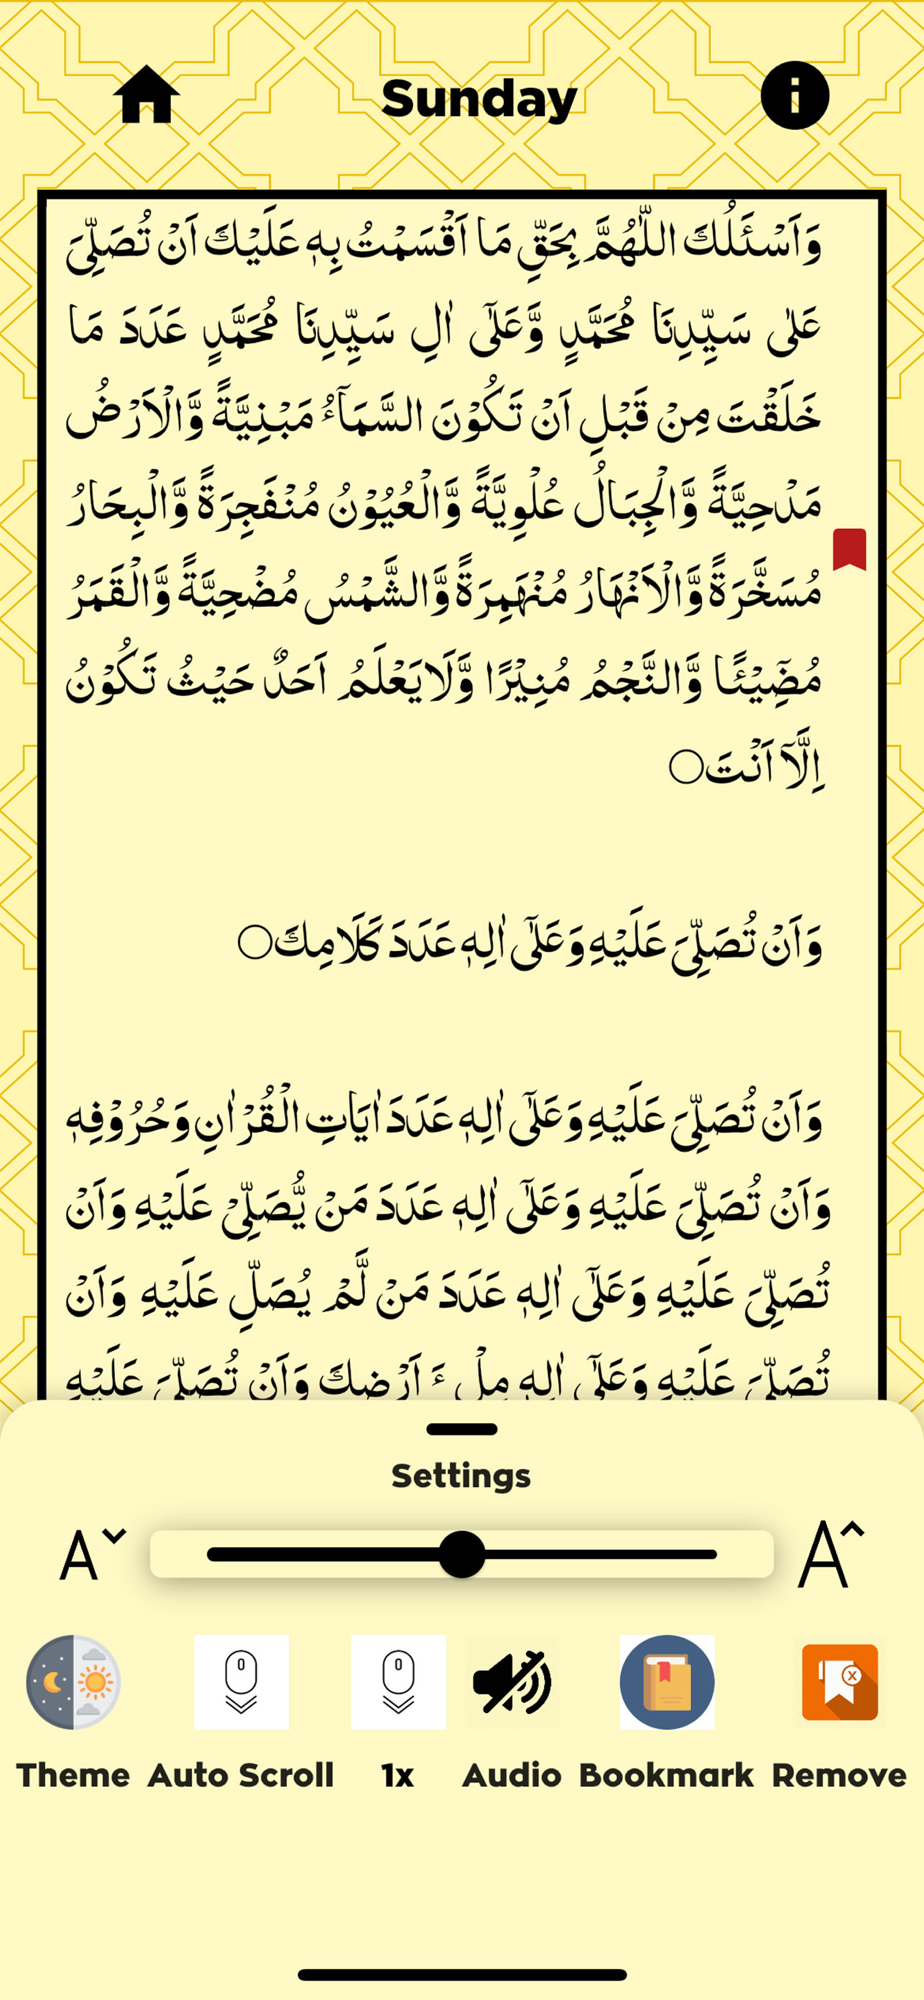 Sunday
وَاَسْئَلُكَ اللّٰهُمَّ بِحَقِّ مَا اَقْسَمْتُ بِهٖ عَلَيْكَ اَنْ تُصَلِّىَ
عَلٰى سَيِّدِنَا مُحَمَّدٍ وَّعَلٰٓى اٰلِ سَيِّدِنَا مُحَمَّدٍ عَدَدَ مَا
خَلَقْتَ مِنْ قَبْلِ اَنْ تَكُوْنَ السَّمَآءُ مَبْنِيَّةً وَّالْاَرْضُ
مَدْحِيَّةً وَّالْجِبَالُ عُلْوِيَّةً وَّالْعُيُوْنُ مُنْفَجِرَةً وَّالْبِحَارُ
مُسَخَّرَةً وَّالْاَنْهَارُ مُنْهَمِرَةً وَّالشَّمْسُ مُضْحِيَّةً وَّالْقَمَرُ
مُضِٓيْئًا وَّالنَّجْمُ مُنِيْرًا وَّلَا يَعْلَمُ اَحَدٌ حَيْثُ تَكُوْنُ
اِلَّآ اَنْتَ○
وَاَنْ تُصَلِّىَ عَلَيْهِ وَعَلٰٓى اٰلِهٖ عَدَدَ كَلَامِكَ○
وَاَنْ تُصَلِّىَ عَلَيْهِ وَعَلٰٓى اٰلِهٖ عَدَدَ اٰيَاتِ الْقُرْاٰنِ وَحُرُوْفِهٖ
وَاَنْ تُصَلِّىَ عَلَيْهِ وَعَلٰٓى اٰلِهٖ عَدَدَ مَنْ يُّصَلِّىْ عَلَيْهِ وَاَنْ
تُصَلِّىَ عَلَيْهِ وَعَلٰٓى اٰلِهٖ عَدَدَ مَنْ لَّمْ يُصَلِّ عَلَيْهِ وَاَنْ
تُصَلِّىَ عَلَيْهِ وَعَلٰٓى اٰلِهٖ مِلْءَ اَرْضِكَ وَاَنْ تُصَلِّىَ عَلَيْهِ
Settings
A A
Theme Auto Scroll 1x Audio Bookmark Remove